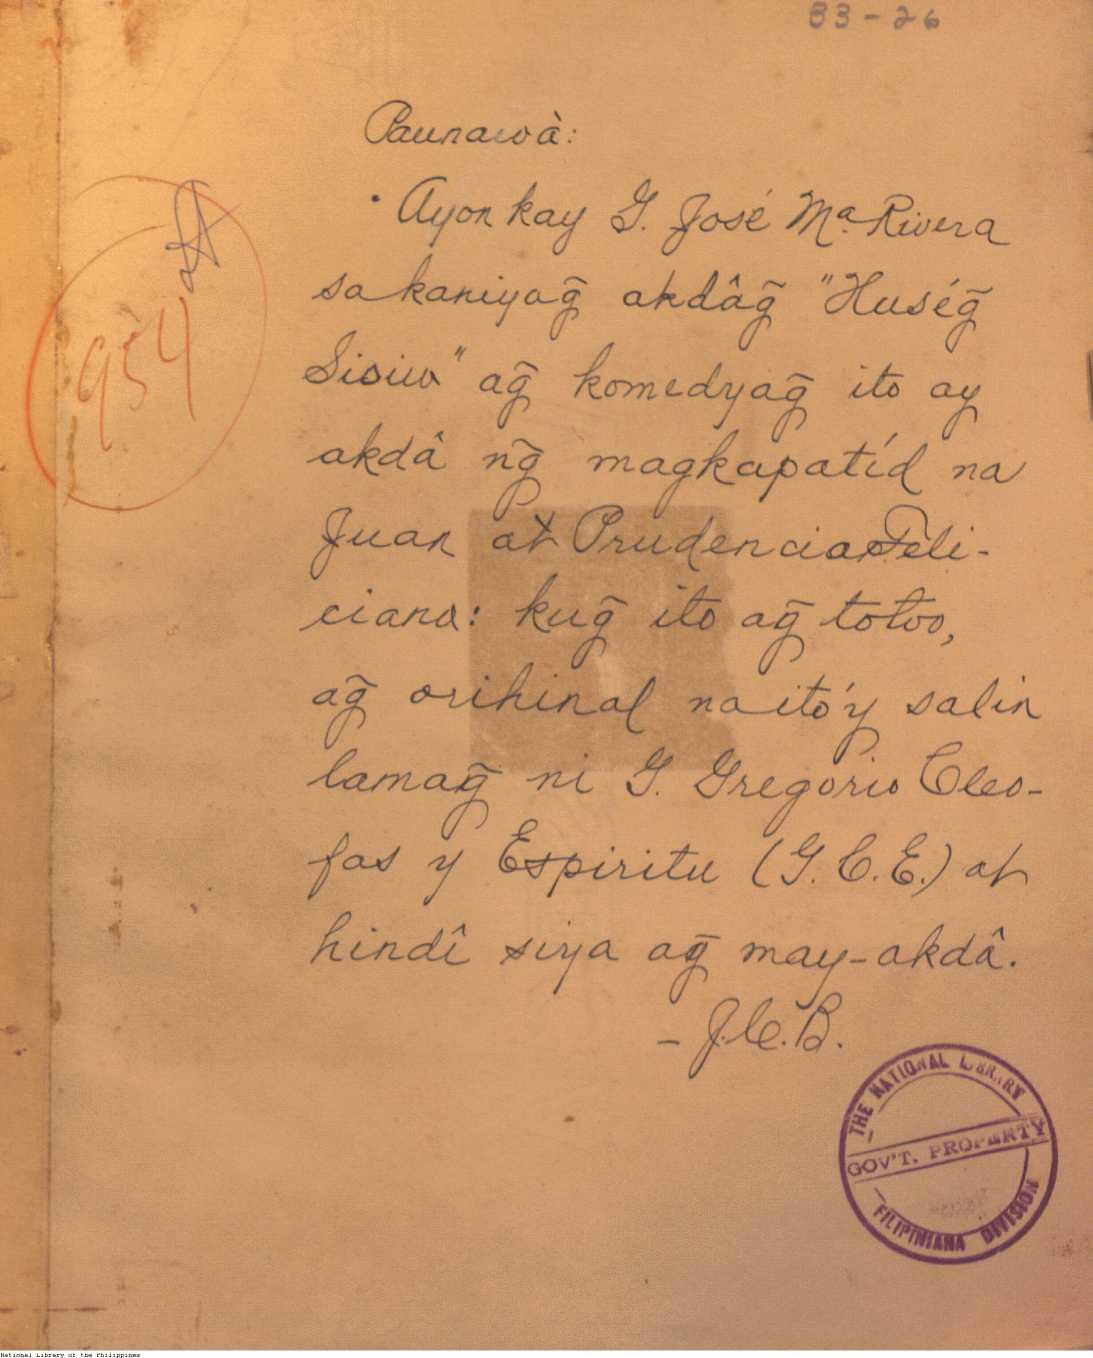 83-26
Paunawà:
Ayon kay G. José Mª Rivera
sa kaniyag̃ akdâg̃ "Huség̃
Sisiw" ag̃ komedyag̃ ito ay
akdâ ng̃ magkapatíd na
Juan at Prudencia Feli-
ciana: kug̃ ito ag̃ totoo,
ag̃ orihinal na itó'y salin
lamag̃ ni G. Gregorio Cleo-
fas y Espiritu (G.C.E.) at
hindî siya ag̃ may-akdâ.
- J.C.B.
954
THE NATIONAL LIBRARY
GOV'T. PROPERTY
FILIPINIANA DIVISION
National Library of the Philippines